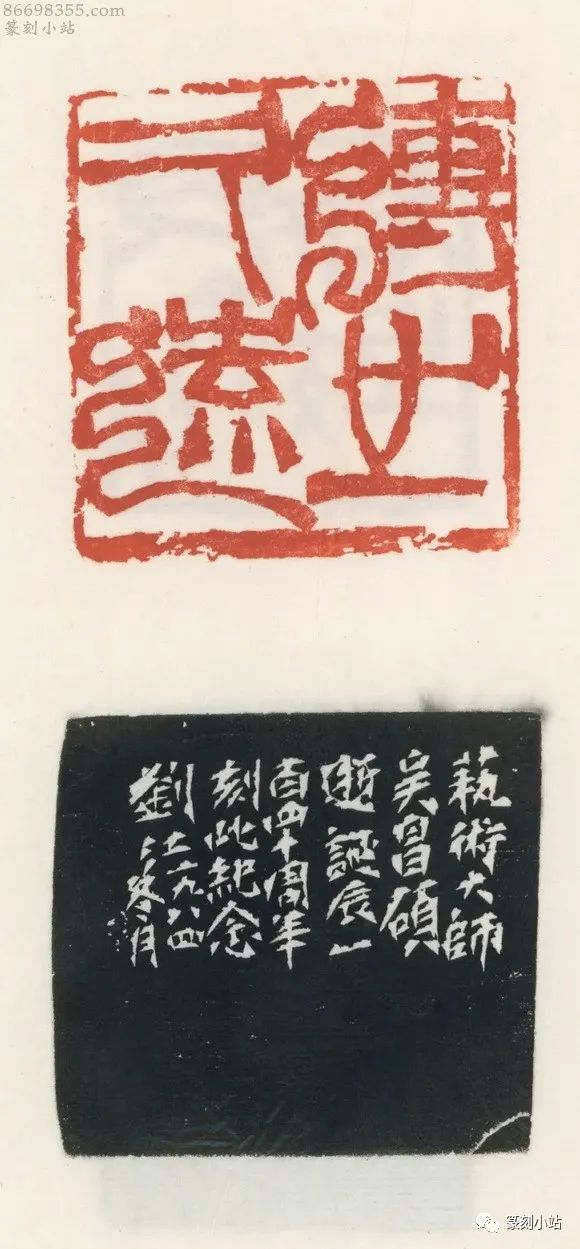 86698355.com
篆刻小站
藝術大師
吴昌碩
誕辰一
百四十周年
刻此紀念
劉江一九八四
冬月
篆刻小站